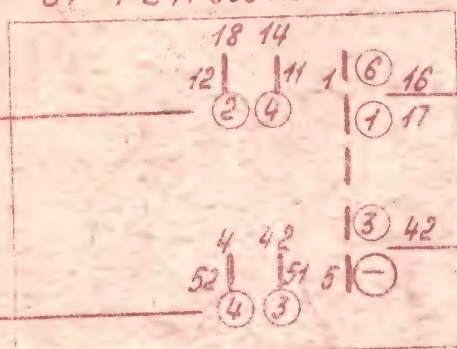 18 14
12 11 1 6 16
2 4 1 17
3 42
4 42
52 51 5 −
4 3